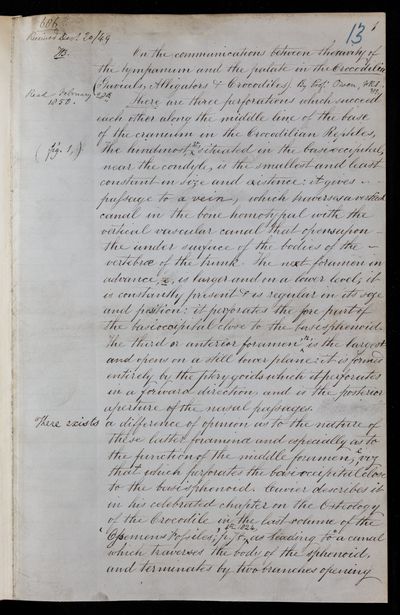 686
13
Received Dec. 20/49
On the communications between the cavity of
the tympanum and the palate in the Crocodilia
(Gavials, Alligators & Crocodiles) By Prof. Owen,
Read February
1850.
There are three perforations which succeed
each other along the middle line of the base
of the cranium in the Crocodilian Reptiles,
(fig. 1,)
The hindmost, situated in the basioccipital,
near the condyle, is the smallest and least
constant in size and existence: it gives
passage to a vein, which traverses a vertical
canal in the bone homotypal with the
vertical vascular canal that opens upon
the under surface of the bodies of the
vertebræ of the trunk. The next foramen in
advance, is larger and on a lower level; it
is constantly present & is regular in its size
and position: it perforates the fore part of
the basioccipital close to the basisphenoid.
The third or anterior foramen is the largest
and opens on a still lower plane: it is formed
entirely by the pterygoids which it perforates
in a forward direction, and is the posterior
aperture of the nasal passages.
There exists a difference of opinion as to the nature of
these latter foramina and especially as to
the function of the middle foramen, viz
that which perforates the basioccipital close
to the basisphenoid. Cuvier describes it
in his celebrated chapter on the Osteology
of the Crocodile in the last volume of the
'Ossemens Fossiles', as leading to "a canal
which traverses the body of the sphenoid,
and terminates by two branches opening